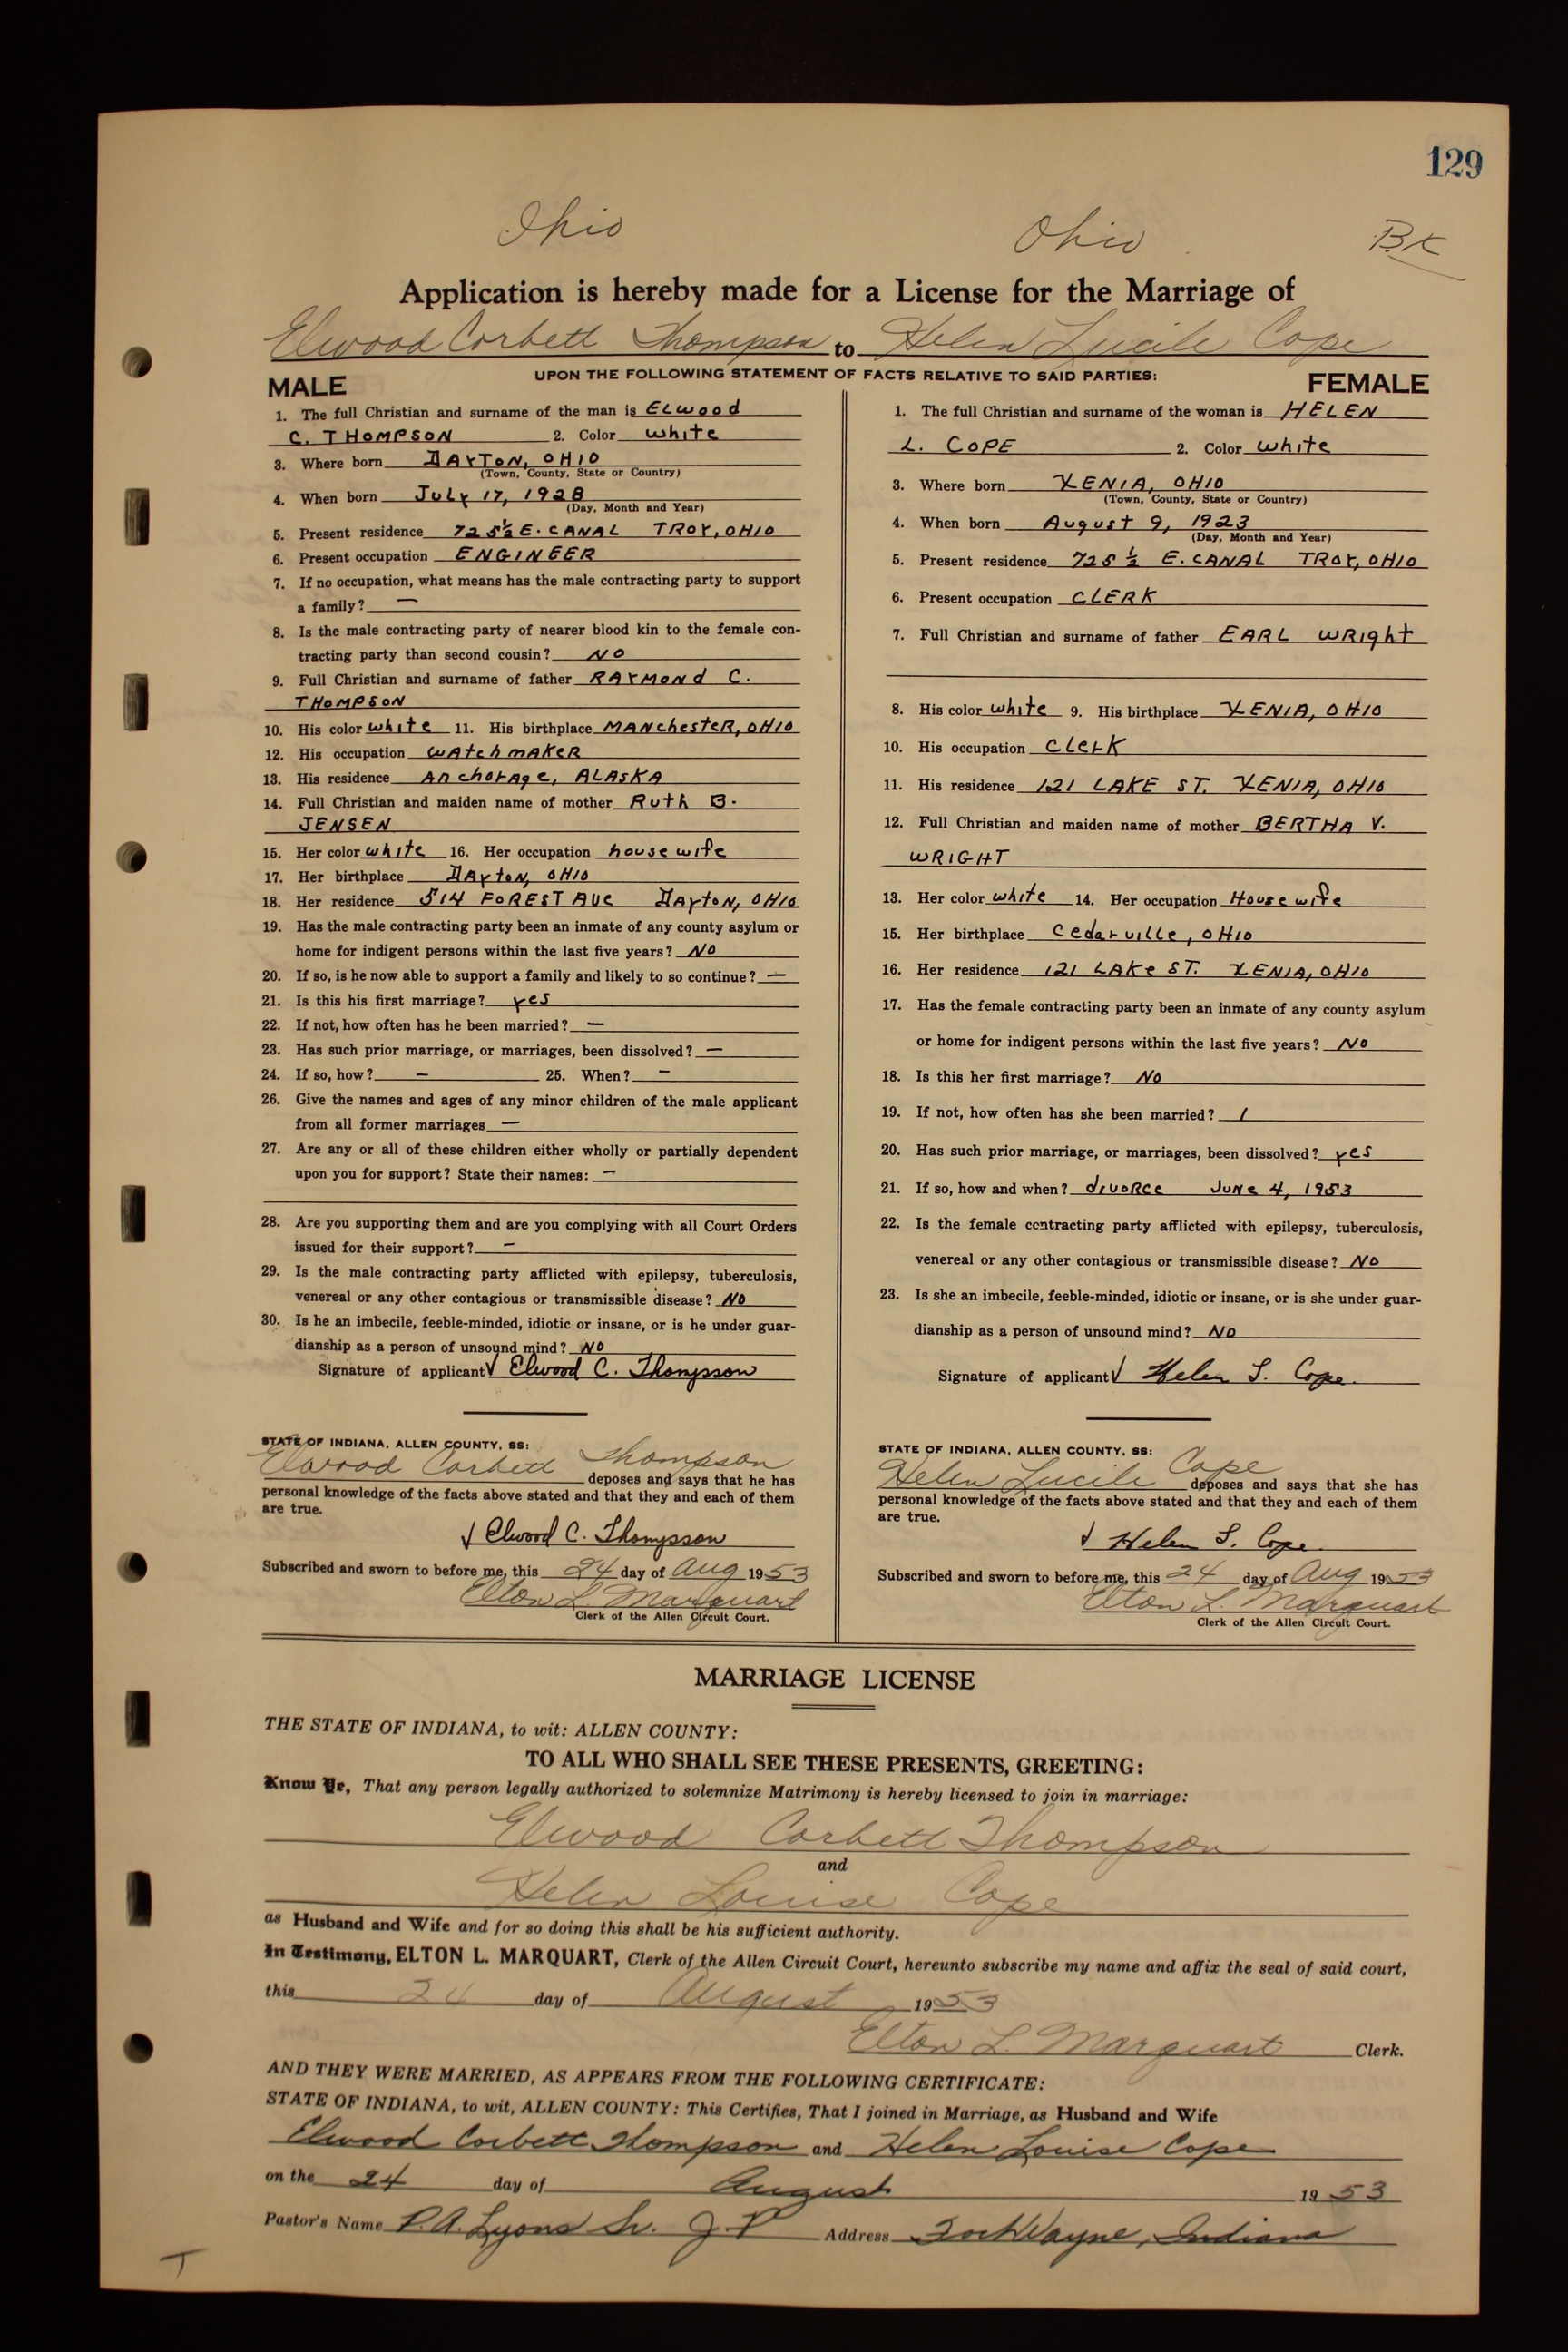 129
Ohio Ohio BK
Application is hereby made for a License for the Marriage of
Elwood Corbett Thompson to Helen Lucile Cope
UPON THE FOLLOWING STATEMENT OF FACTS RELATIVE TO SAID PARTIES:
MALE
1. The full Christian and surname of the man is ELwood
C. THOMPSON 2. Color white
3. Where born DAYTON, OHIO
(Town, County, State or Country)
4. When born July 17, 1928
(Day, Month and Year)
5. Present residence 725½ E. CANAL TROY, OHIO
6. Present occupation ENGINEER
7. If no occupation, what means has the male contracting party to support
a family? —
8. Is the male contracting party of nearer blood kin to the female con-
tracting party than second cousin? NO
9. Full Christian and surname of father RAYMOND C.
THOMPSON
10. His color white 11. His birthplace MANchesteR, OHIO
12. His occupation WAtchmAKeR
13. His residence AnchorAge, ALASKA
14. Full Christian and maiden name of mother Ruth B.
JENSEN
15. Her color white 16. Her occupation housewife
17. Her birthplace DAyton, OHIO
18. Her residence 514 FOREST AVE DAyton, OHIO
19. Has the male contracting party been an inmate of any county asylum or
home for indigent persons within the last five years? NO
20. If so, is he now able to support a family and likely to so continue? —
21. Is this his first marriage? yes
22. If not, how often has he been married? —
23. Has such prior marriage, or marriages, been dissolved? —
24. If so, how? — 25. When? —
26. Give the names and ages of any minor children of the male applicant
from all former marriages —
27. Are any or all of these children either wholly or partially dependent
upon you for support? State their names: —
28. Are you supporting them and are you complying with all Court Orders
issued for their support? —
29. Is the male contracting party afflicted with epilepsy, tuberculosis,
venereal or any other contagious or transmissible disease? NO
30. Is he an imbecile, feeble-minded, idiotic or insane, or is he under guar-
dianship as a person of unsound mind? NO
Signature of applicant √ Elwood C. Thompson
STATE OF INDIANA, ALLEN COUNTY, SS:
Elwood Corbett Thompson deposes and says that he has
personal knowledge of the facts above stated and that they and each of them
are true.
√ Elwood C. Thompson
Subscribed and sworn to before me, this 24 day of Aug 1953
Elton L. Marquart
Clerk of the Allen Circuit Court.
FEMALE
1. The full Christian and surname of the woman is HELEN
L. COPE 2. Color white
3. Where born XENIA, OHIO
(Town, County, State or Country)
4. When born August 9, 1923
(Day, Month and Year)
5. Present residence 725 ½ E. CANAL TROY, OHIO
6. Present occupation CLERK
7. Full Christian and surname of father EARL WRight
8. His color white 9. His birthplace XENIA, OHIO
10. His occupation CLerK
11. His residence 121 LAKE ST. XENIA, OHIO
12. Full Christian and maiden name of mother BERTHA V.
WRIGHT
13. Her color white 14. Her occupation Housewife
15. Her birthplace Cedarville, OHIO
16. Her residence 121 LAKe ST. XENIA, OHIO
17. Has the female contracting party been an inmate of any county asylum
or home for indigent persons within the last five years? NO
18. Is this her first marriage? NO
19. If not, how often has she been married? 1
20. Has such prior marriage, or marriages, been dissolved? yes
21. If so, how and when? divoRce JuNe 4, 1953
22. Is the female contracting party afflicted with epilepsy, tuberculosis,
venereal or any other contagious or transmissible disease? NO
23. Is she an imbecile, feeble-minded, idiotic or insane, or is she under guar-
dianship as a person of unsound mind? NO
Signature of applicant √ Helen L. Cope.
STATE OF INDIANA, ALLEN COUNTY, SS:
Helen Lucile Cope deposes and says that she has
personal knowledge of the facts above stated and that they and each of them
are true.
√ Helen L. Cope
Subscribed and sworn to before me, this 24 day of Aug 1953
Elton L. Marquart
Clerk of the Allen Circuit Court.
MARRIAGE LICENSE
THE STATE OF INDIANA, to wit: ALLEN COUNTY:
TO ALL WHO SHALL SEE THESE PRESENTS, GREETING:
Know Ye, That any person legally authorized to solemnize Matrimony is hereby licensed to join in marriage:
Elwood Corbett Thompson
and
Helen Louise Cope
as Husband and Wife and for so doing this shall be his sufficient authority.
In Testimony, ELTON L. MARQUART, Clerk of the Allen Circuit Court, hereunto subscribe my name and affix the seal of said court,
this 24 day of August 1953
Elton L. Marquart Clerk.
AND THEY WERE MARRIED, AS APPEARS FROM THE FOLLOWING CERTIFICATE:
STATE OF INDIANA, to wit, ALLEN COUNTY: This Certifies, That I joined in Marriage, as Husband and Wife
Elwood Corbett Thompson and Helen Louise Cope
on the 24 day of August 1953
Pastor's Name P.A. Lyons Sr. J.P Address Fort Wayne, Indiana
T